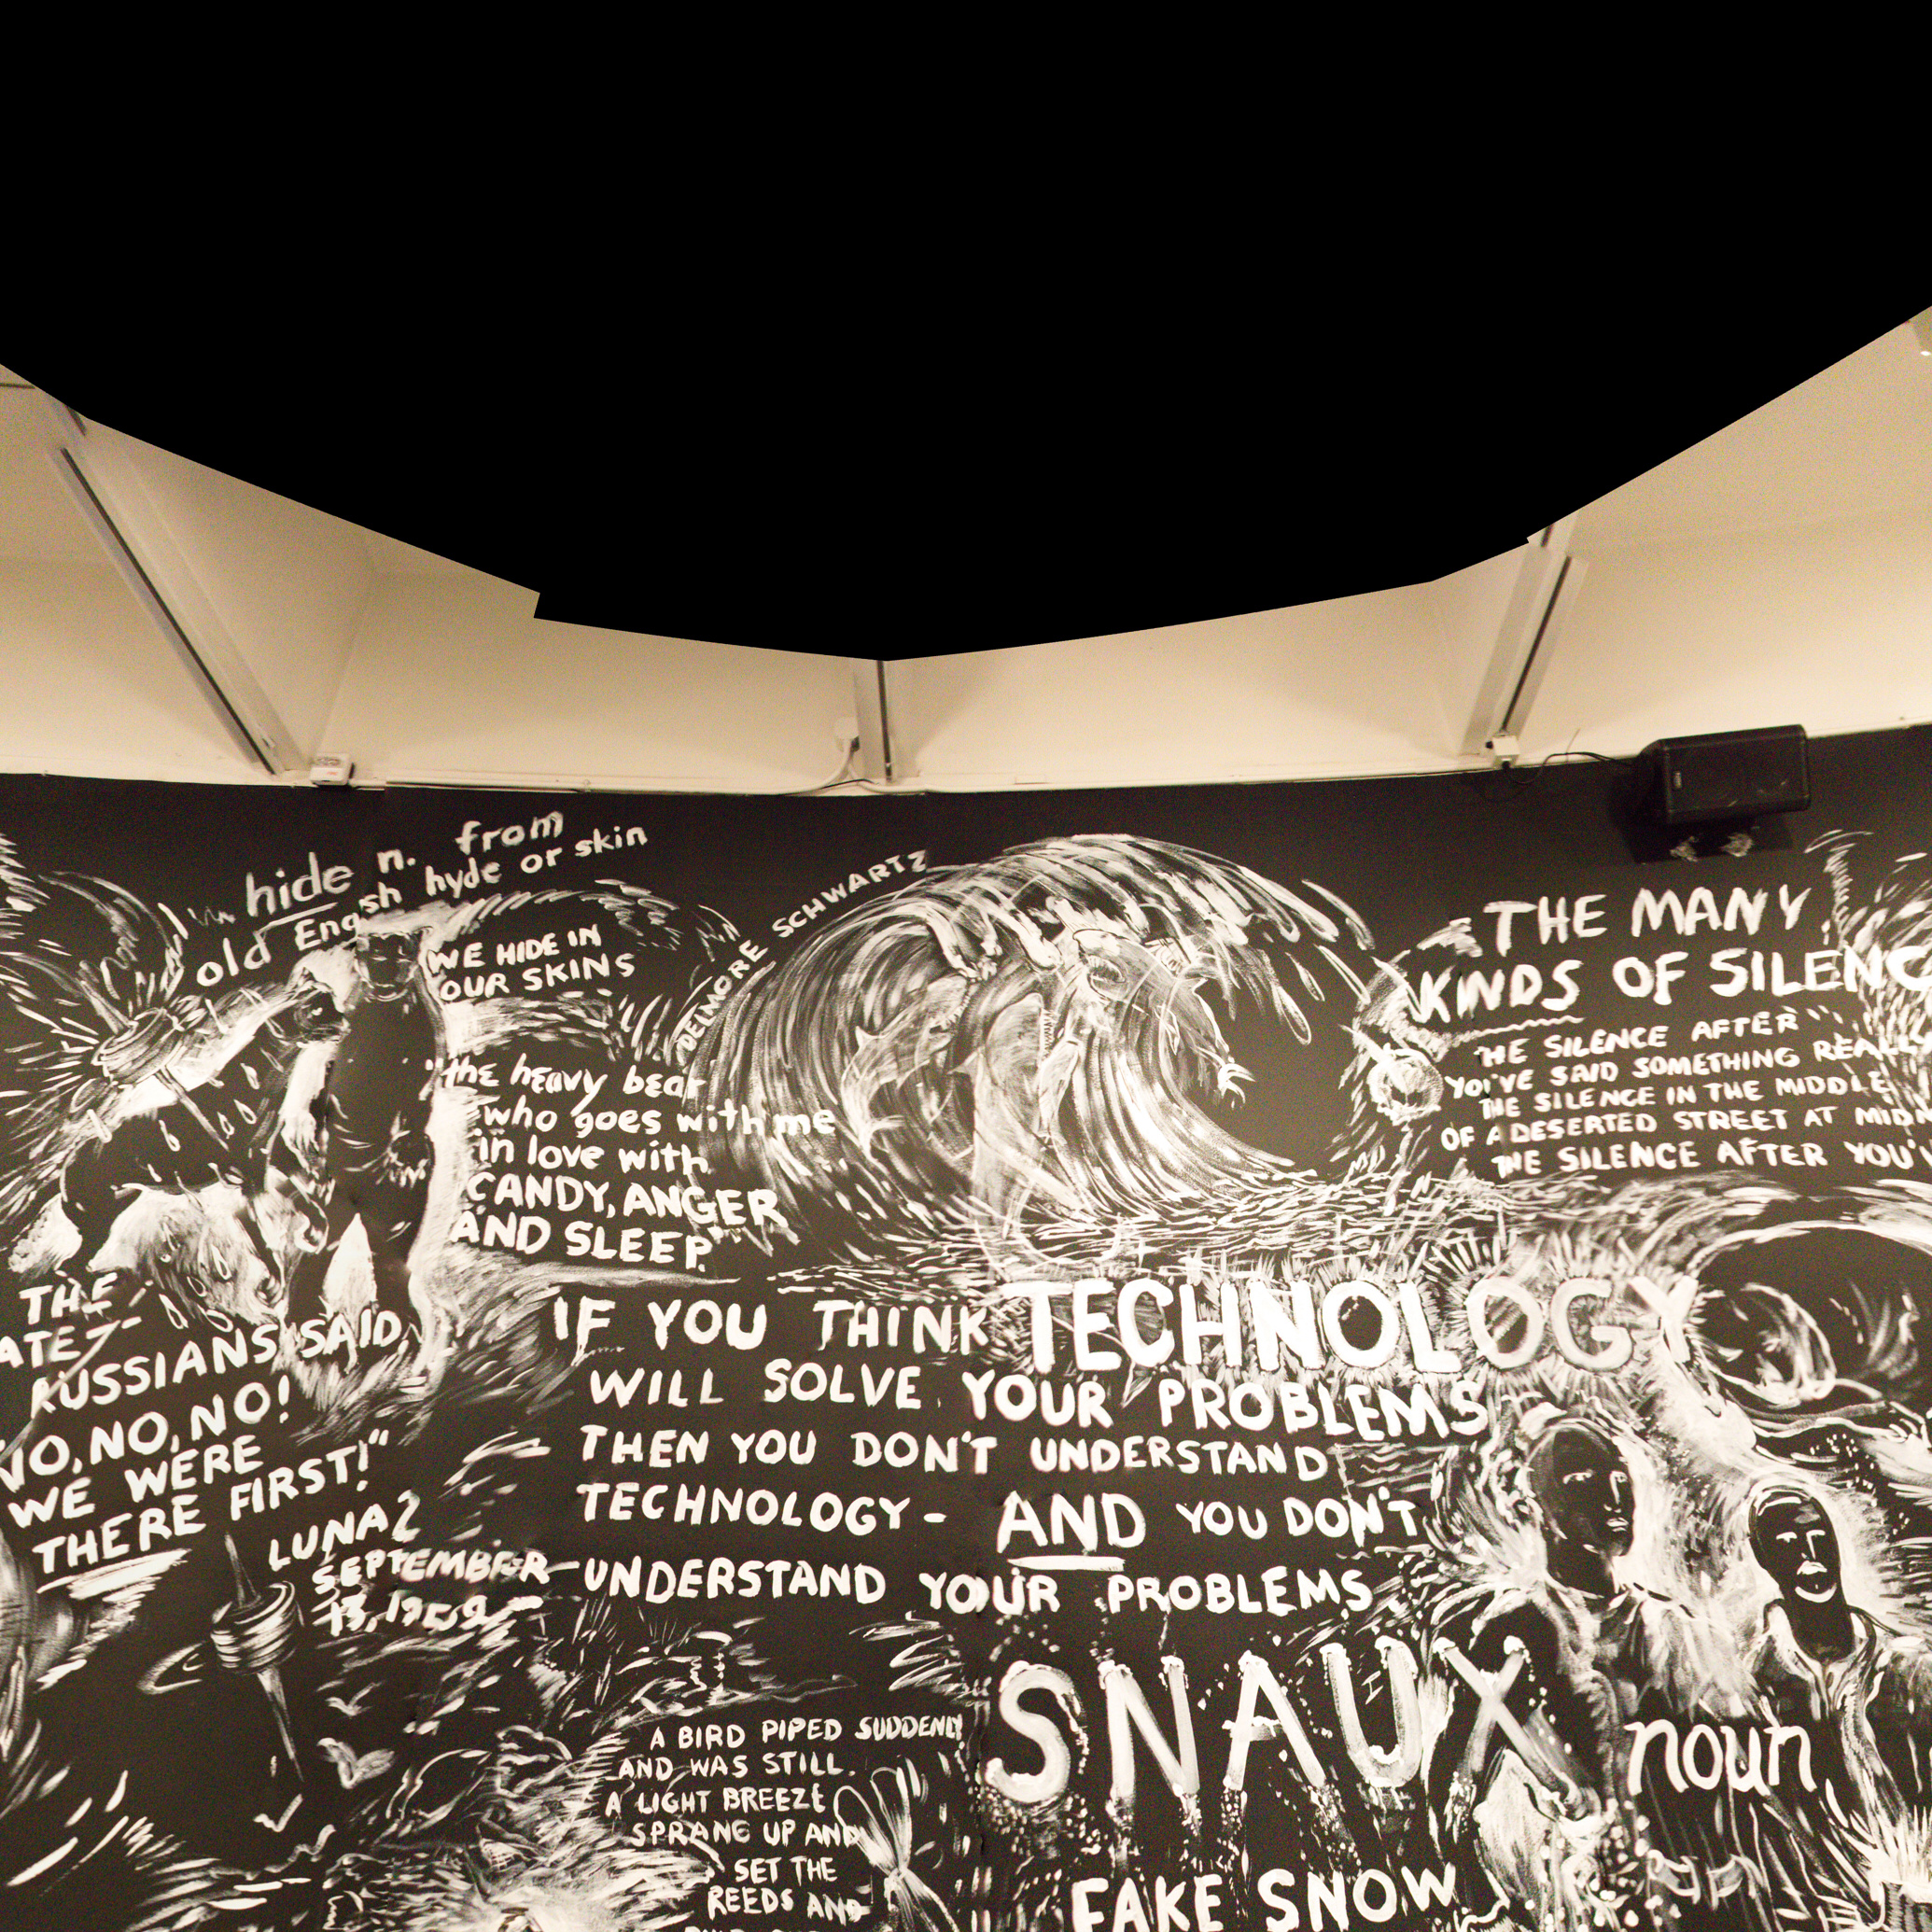 hide n. from
old Engsh hyde or skin
WE HIDE IN
OUR SKINS
DELMORE SCHWARTZ
"the heavy bear
who goes with me
in love with
CANDY, ANGER
AND SLEEP."
THE MANY
KINDS OF SILENC
THE SILENCE AFTER
YOU'VE SAID SOMETHING REALLY
THE SILENCE IN THE MIDDLE
OF A DESERTED STREET AT MIDN
THE SILENCE AFTER YOU'V
THE
RUSSIANS SAID
NO, NO, NO!
WE WERE
THERE FIRST!"
LUNA 2
SEPTEMBER
13, 1959
IF YOU THINK TECHNOLOGY
WILL SOLVE YOUR PROBLEMS
THEN YOU DON'T UNDERSTAND
TECHNOLOGY - AND YOU DON'T
UNDERSTAND YOUR PROBLEMS.
SNAUX noun
FAKE SNOW
A BIRD PIPED SUDDENLY
AND WAS STILL.
A LIGHT BREEZE
SPRANG UP AND
SET THE
REEDS AND